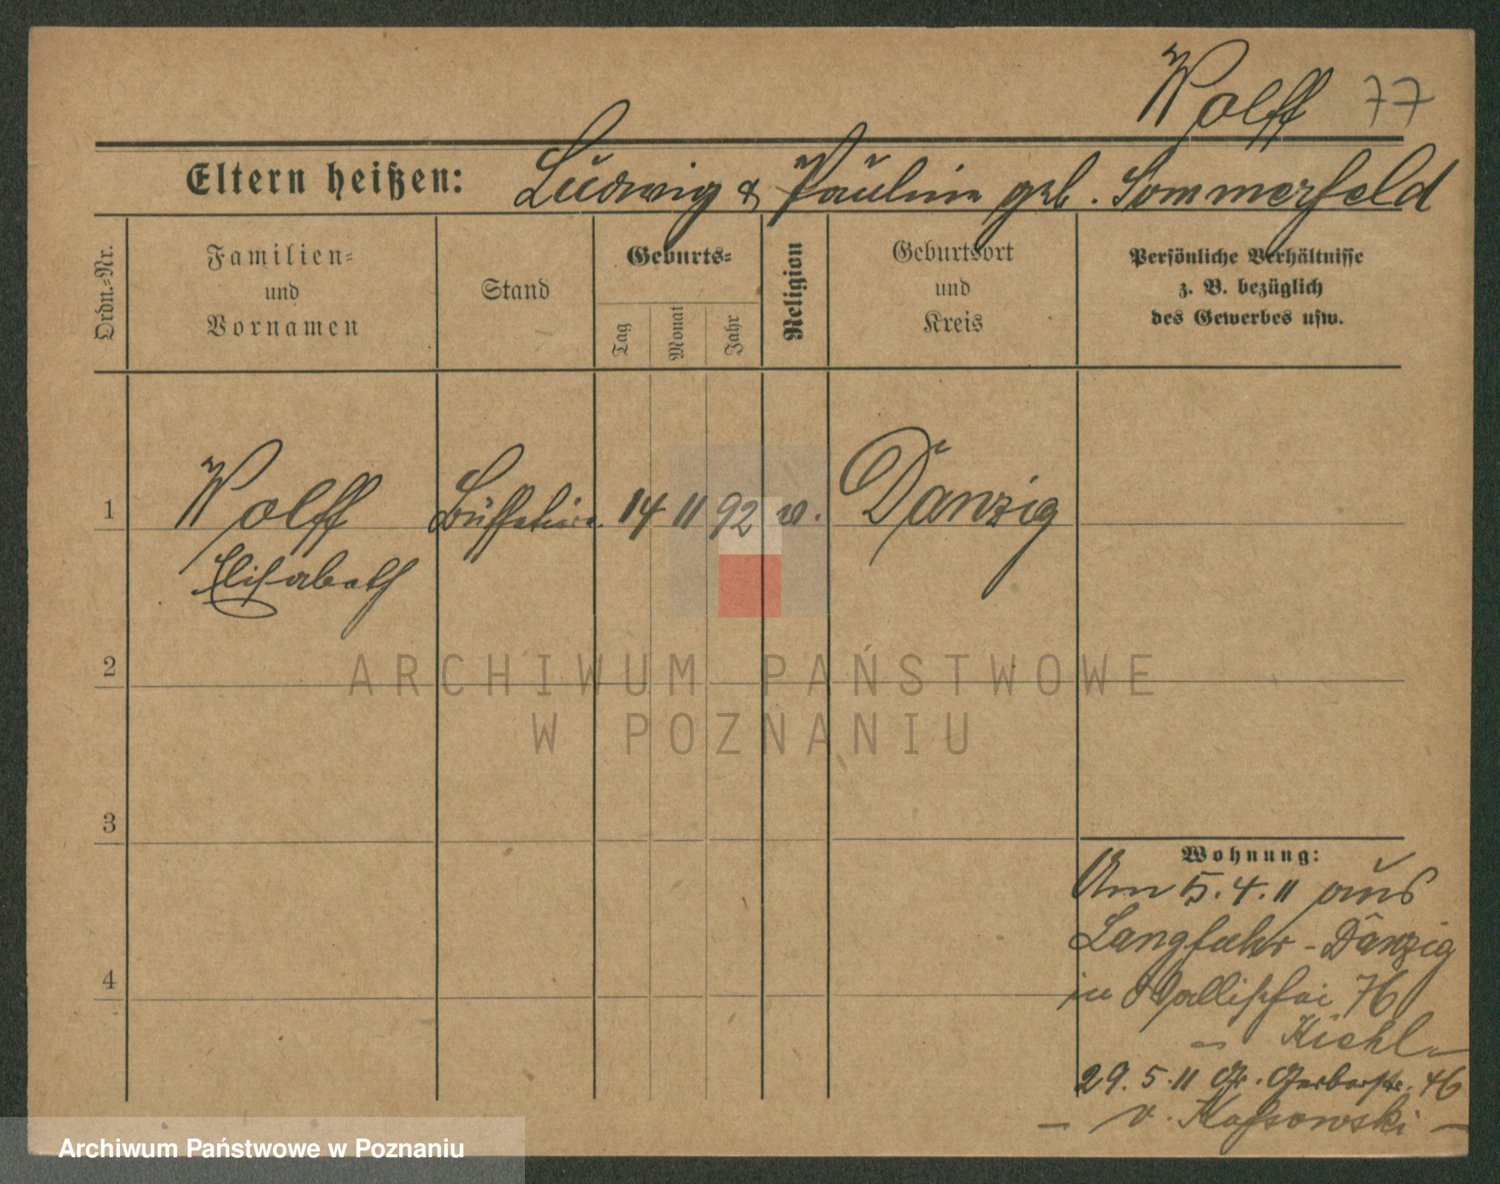 Wolff 77
Eltern heißen: Ludwig & Pauline geb. Sommerfeld
Ordn.-Nr.
Familien-
und
Vornamen
Stand
Geburts-
Tag
Monat
Jahr
Religion
Geburtsort
und
Kreis
Persönliche Verhältnisse
z. B. bezüglich
des Gewerbes usw.
1 Wolff 14 11 92 Danzig
Elisabeth
2
3
4
Wohnung:
Am 5.4.11 aus
Langfuhr - Danzig
in Wallischei 76
- Kiehl -
29.5.11 Gr. Gerberstr. 46
- v. Kossowski -
ARCHIWUM PAŃSTWOWE
W POZNANIU
Archiwum Państwowe w Poznaniu